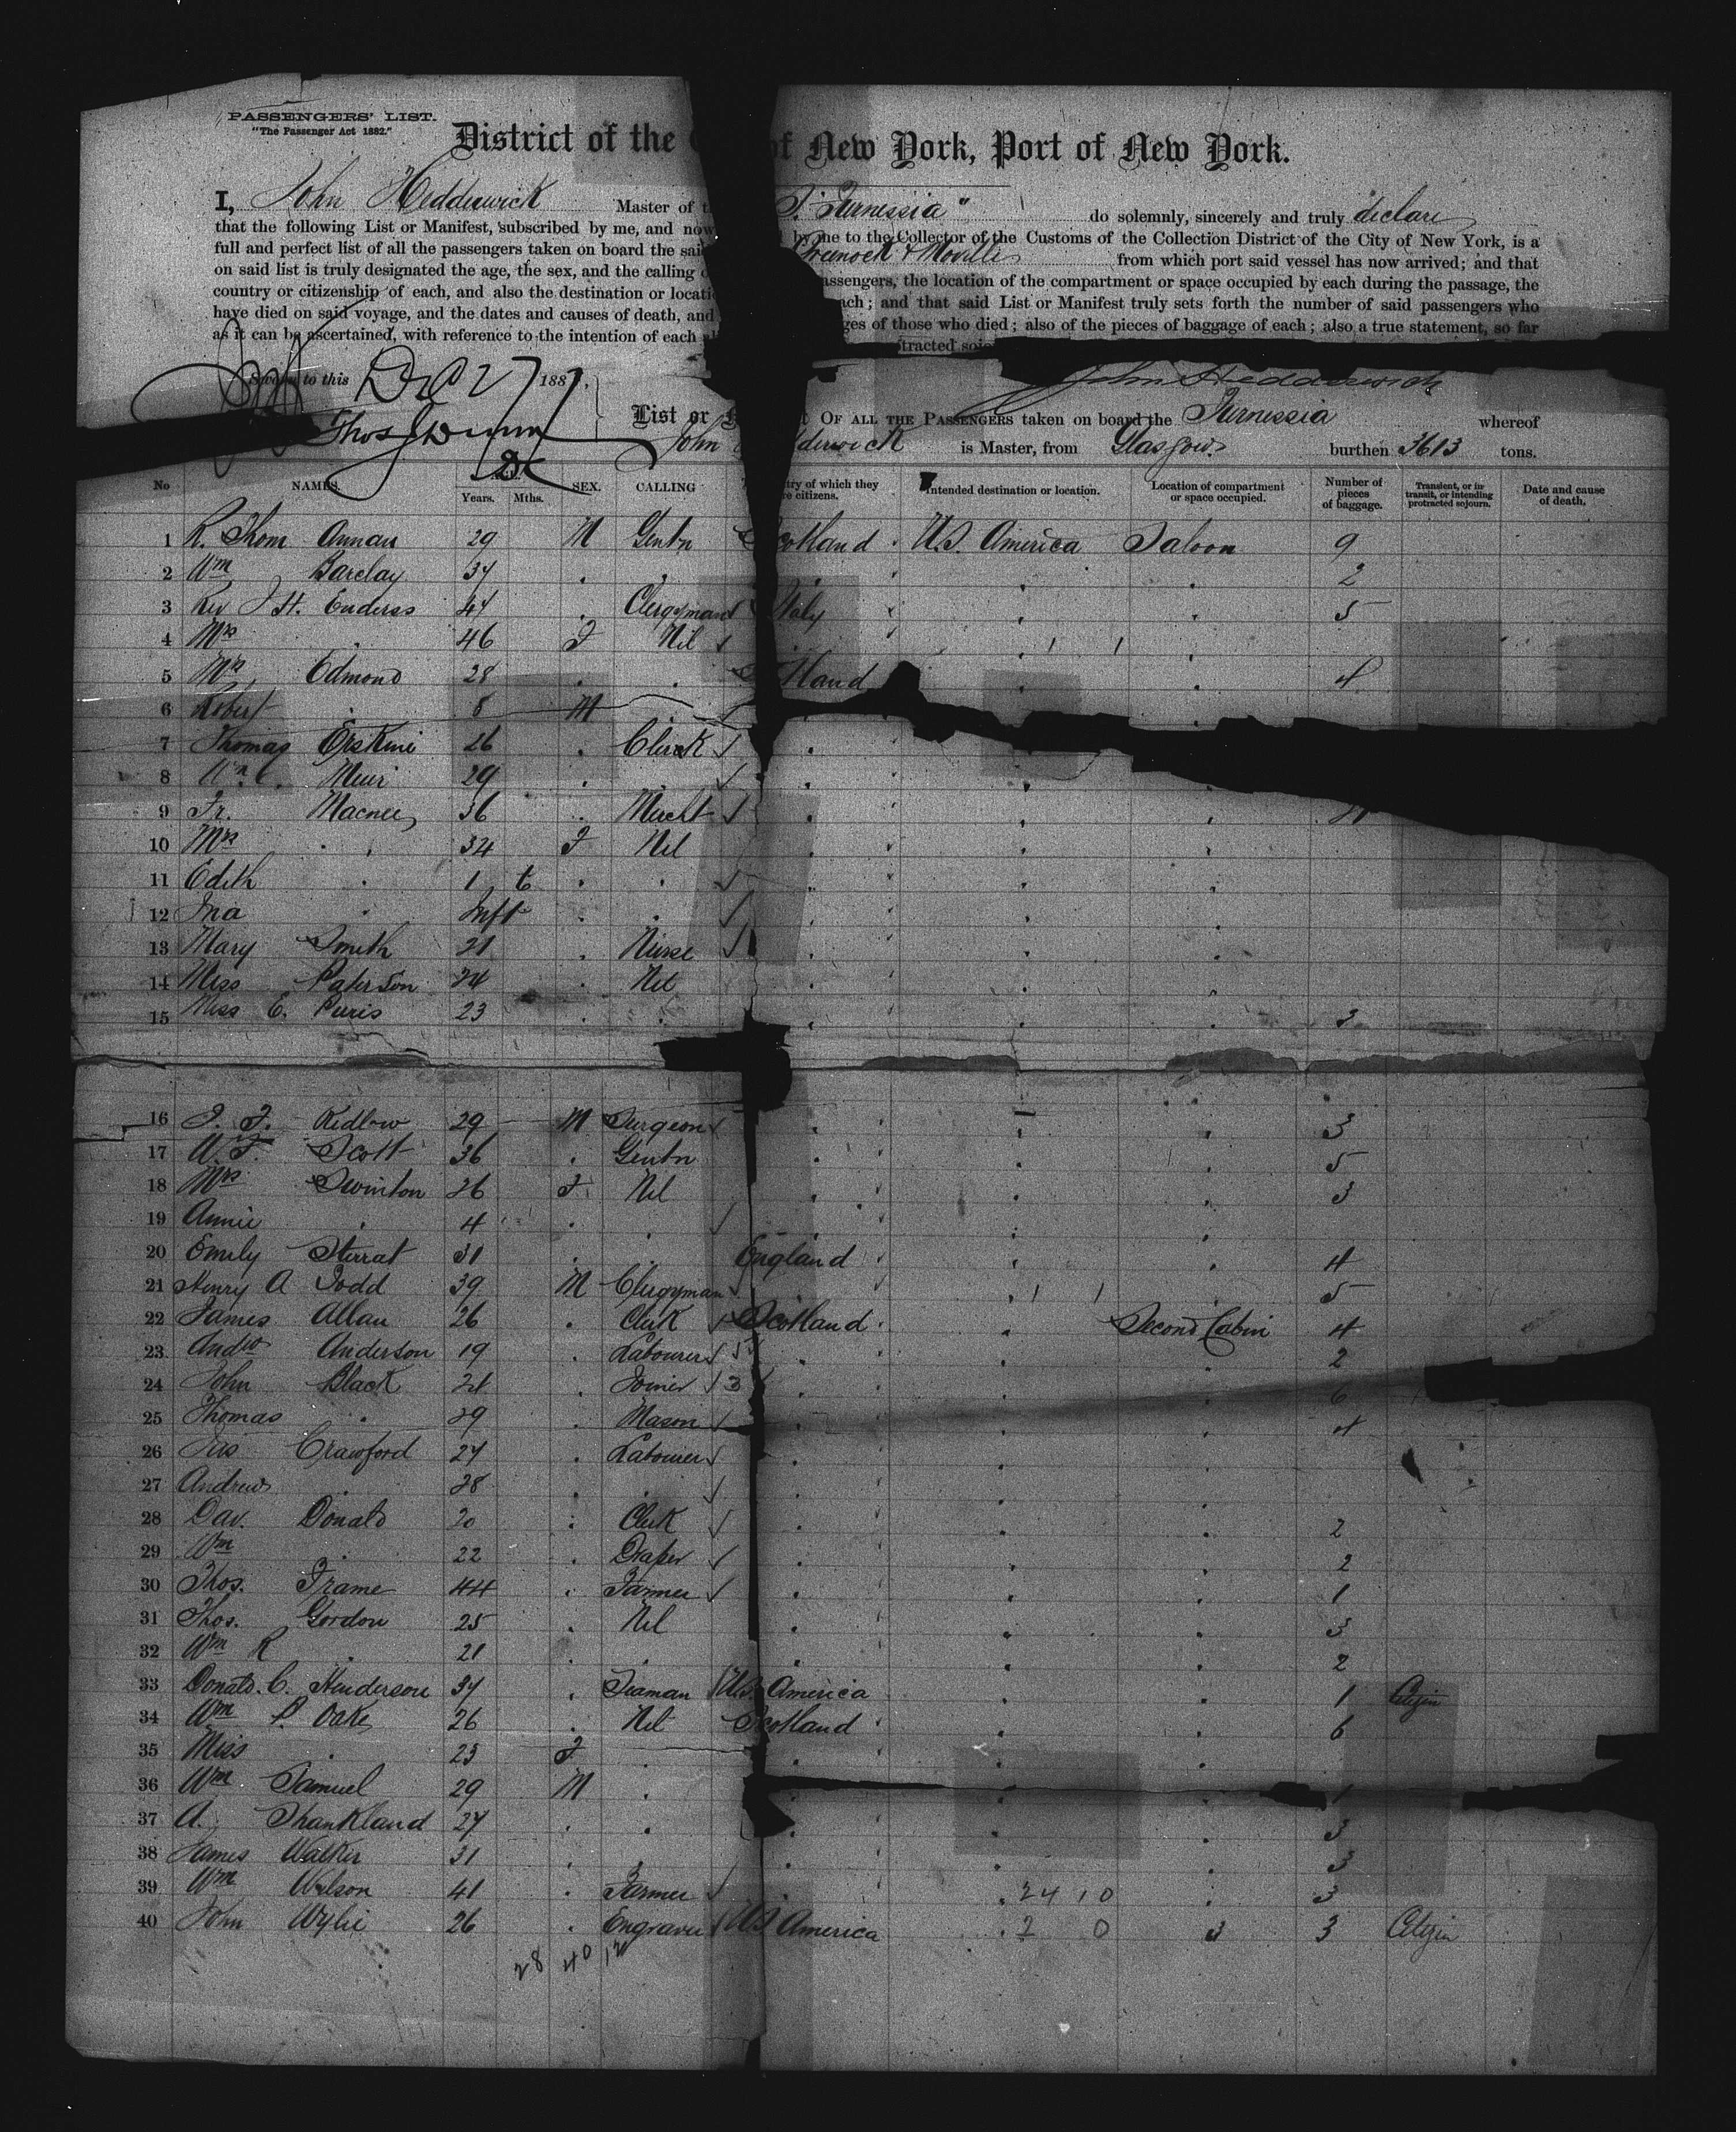 PASSENGERS' LIST.
"The Passenger Act 1882."
District of the of New York, Port of New York.
I, John Hedderwick Master of S. Furnessia" do solemnly, sincerely and truly declare
that the following List or Manifest, subscribed by me, and now by me to the Collector of the Customs of the Collection District of the City of New York, is a
full and perfect list of all the passengers taken on board the said Greenock & Moville from which port said vessel has now arrived; and that
on said list is truly designated the age, the sex, and the calling passengers, the location of the compartment or space occupied by each during the passage, the
country or citizenship of each, and also the destination or each; and that said List or Manifest truly sets forth the number of said passengers who
have died on said voyage, and the dates and causes of death, and of those who died; also of the pieces of baggage of each; also a true statement, so far
as it can be ascertained, with reference to the intention of each
Sworn to this Dec 27 1887, John Hedderwick
List or OF ALL THE PASSENGERS taken on board the Furnessia whereof
John Hedderwick is Master, from Glasgow burthen 3613 tons.
No NAMES. Years. Mths. SEX. CALLING of which they citizens. Intended destination or location. Location of compartment or space occupied. Number of pieces of baggage. Transient, or in transit, or intending protracted sojourn. Date and cause of death.
1 R. Thom Annan 29 M Gentn Scotland U.S. America Saloon 9
2 Wm Barclay 34 2
3 Rev J H. Enderss 44 Clergyman Italy 5
4 Mrs 46 F Nil
5 Mrs Edmond 28 4
6 Robert 8 M
7 Thomas Erskine 26 Clerk
8 Muir 29
9 Fr. Macnee 36 Mercht
10 Mrs 34 F Nil
11 Edith 1 6
12 Ina Inft
13 Mary Smith 21 Nurse
14 Miss Paterson 24 Nil
15 Miss E. Puris 23 3
16 Kidlow 29 M Surgeon 3
17 W. F. Scott 36 Gentn 5
18 Mrs Swinton 26 F Nil 3
19 Annie 4
20 Emily Sterrat 31 England 4
21 Henry A Todd 39 M Clergyman 5
22 James Allan 26 Clerk Scotland Second Cabin 4
23 Andw Anderson 19 Labourer 2
24 John Black 21 Joiner 6
25 Thomas 29 Mason 4
26 Jas Crawford 24 Labourer
27 Andrew 28
28 Dav. Donald 20 Clerk 2
29 Wm 22 Draper 2
30 Thos. Frame 44 Farmer 1
31 Thos. Gordon 25 Nil 3
32 Wm R 21 2
33 Donald. C. Henderson 34 Seaman U.S. America 1 Citizen
34 Wm P. Oake 26 Nil Scotland 6
35 Miss 23 F
36 Wm Samuel 29 M 1
37 A. Shankland 24 3
38 James Walker 31 3
39 Wm Wilson 41 Farmer 3
40 John Wylie 26 Engraver U.S America 3 Citizen
28 40 12